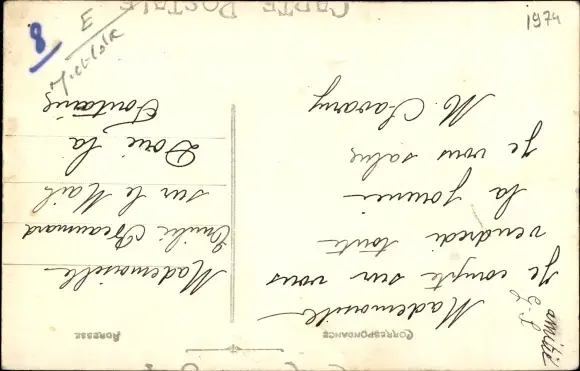 CARTE POSTALE
CORRESPONDANCE
Mademoiselle
Je compte sur vous
vendredi toute
la journée
Je vous salue
M. Chavany
amitié
ADRESSE
Mademoiselle
Emilie Beaumard
sur le Mail
Doué la
Fontaine
8
E
1974